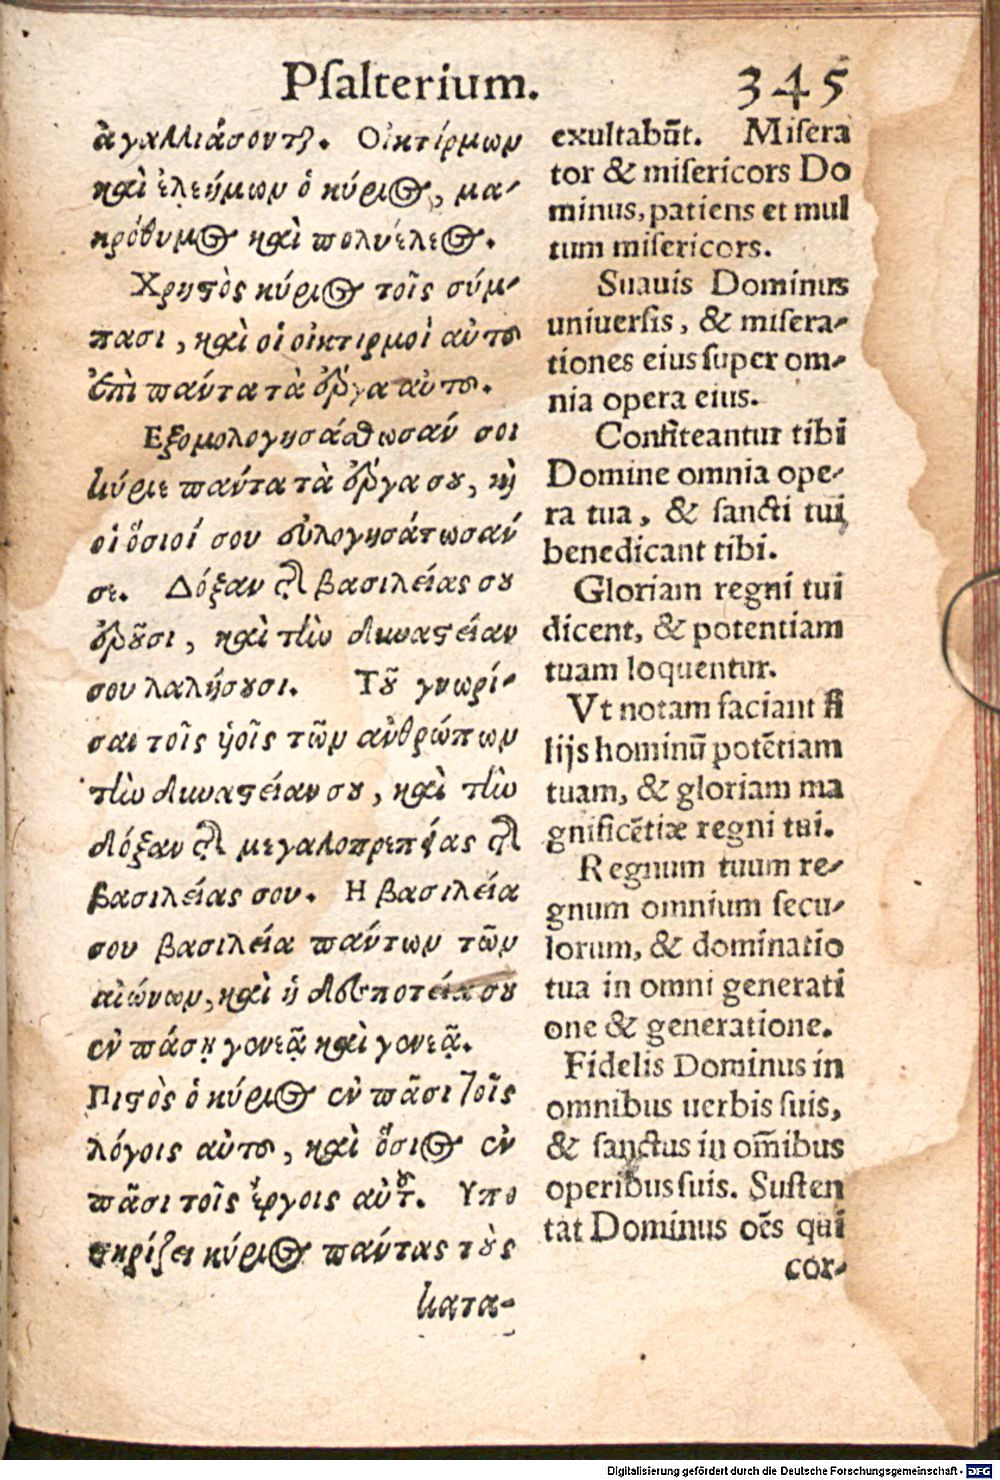 Psalterium. 345
ἀγαλλιάσονται. Οἰκτίρμων
καὶ ἐλεήμων ὁ κύριος, μα-
κρόθυμος καὶ πολυέλεος.
Χρηστὸς κύριος τοῖς σύμ-
πασι, καὶ οἱ οἰκτιρμοὶ αὐτοῦ
ἐπὶ πάντα τὰ ἔργα αὐτοῦ.
Εξομολογησάσθωσάν σοι
κύριε πάντα τὰ ἔργα σου, καὶ
οἱ ὅσιοί σου εὐλογησάτωσάν
σε. Δόξαν τῆς βασιλείας σου
ἐροῦσι, καὶ τὴν δυναστείαν
σου λαλήσουσι. Τοῦ γνωρί-
σαι τοῖς ὑοῖς τῶν ἀνθρώπων
τὴν δυναστείαν σου, καὶ τὴν
δόξαν τῆς μεγαλοπρεπείας τῆς
βασιλείας σου. Η βασιλεία
σου βασιλεία πάντων τῶν
αἰώνων, καὶ ἡ δεσποτεία σου
ἐν πάσῃ γενεᾷ καὶ γενεᾷ.
Πιστὸς ὁ κύριος ἐν πᾶσι τοῖς
λόγοις αὐτοῦ, καὶ ὅσιος ἐν
πᾶσι τοῖς ἔργοις αὐτοῦ. Υπο
στηρίζει κύριος πάντας τοὺς
κατα-
exultabūt. Misera
tor & misericors Do
minus, patiens et mul
tum misericors.
Suauis Dominus
uniuersis, & misera-
tiones eius super om-
nia opera eius.
Confiteantur tibi
Domine omnia ope-
ra tua, & sancti tui
benedicant tibi.
Gloriam regni tui
dicent, & potentiam
tuam loquentur.
Vt notam faciant fi
lijs hominū potētiam
tuam, & gloriam ma
gnificētiæ regni tui.
Regnum tuum re-
gnum omnium secu-
lorum, & dominatio
tua in omni generati
one & generatione.
Fidelis Dominus in
omnibus uerbis suis,
& sanctus in om̄ibus
operibus suis. Susten
tat Dominus oēs qui
cor-
Digitalisierung gefördert durch die Deutsche Forschungsgemeinschaft - DFG